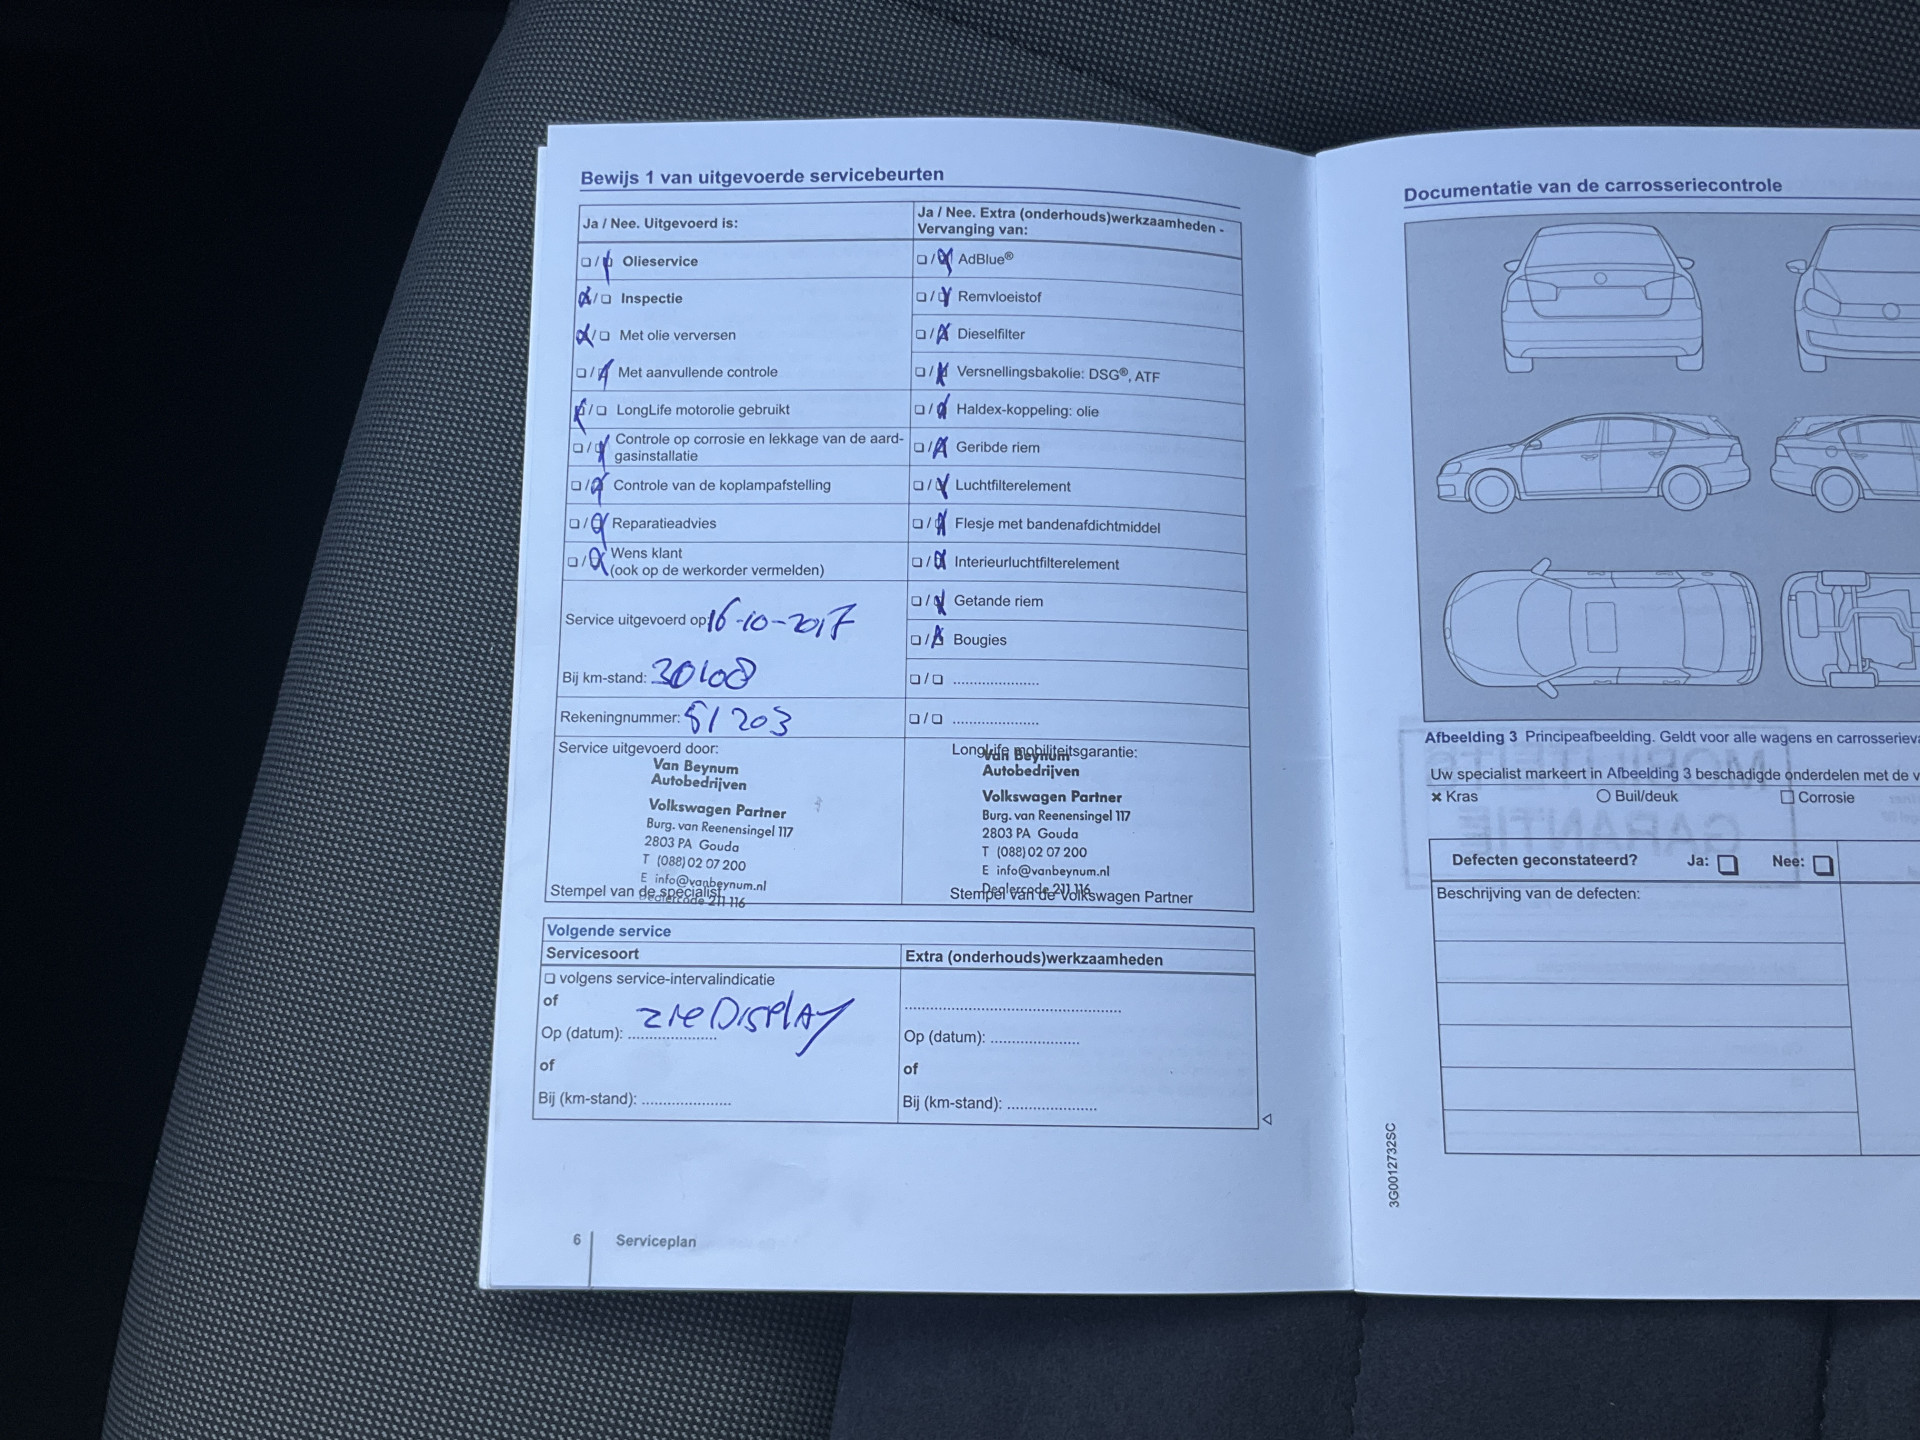 Bewijs 1 van uitgevoerde servicebeurten
Ja / Nee. Uitgevoerd is:
Olieservice
Inspectie
Met olie verversen
Met aanvullende controle
LongLife motorolie gebruikt
Controle op corrosie en lekkage van de aard-
gasinstallatie
Controle van de koplampafstelling
Reparatieadvies
Wens klant
(ook op de werkorder vermelden)
Service uitgevoerd op: 16-10-2017
Bij km-stand: 30108
Rekeningnummer: 51203
Service uitgevoerd door:
Van Beynum
Autobedrijven
Volkswagen Partner
Burg. van Reenensingel 117
2803 PA Gouda
T (088) 02 07 200
E info@vanbeynum.nl
Dealercode 211 116
Stempel van de specialist
Ja / Nee. Extra (onderhouds)werkzaamheden -
Vervanging van:
AdBlue®
Remvloeistof
Dieselfilter
Versnellingsbakolie: DSG®, ATF
Haldex-koppeling: olie
Geribde riem
Luchtfilterelement
Flesje met bandenafdichtmiddel
Interieurluchtfilterelement
Getande riem
Bougies
LongLife mobiliteitsgarantie:
Van Beynum
Autobedrijven
Volkswagen Partner
Burg. van Reenensingel 117
2803 PA Gouda
T (088) 02 07 200
E info@vanbeynum.nl
Dealercode 211 116
Stempel van de Volkswagen Partner
Volgende service
Servicesoort
volgens service-intervalindicatie
of
Op (datum): zie Display
of
Bij (km-stand):
Extra (onderhouds)werkzaamheden
Op (datum):
of
Bij (km-stand):
6 Serviceplan
Documentatie van de carrosseriecontrole
Afbeelding 3 Principeafbeelding. Geldt voor alle wagens en
Uw specialist markeert in Afbeelding 3 beschadigde onderdelen met de
Kras
Buil/deuk
Corrosie
Defecten geconstateerd? Ja: Nee:
Beschrijving van de defecten:
3G0012732SC